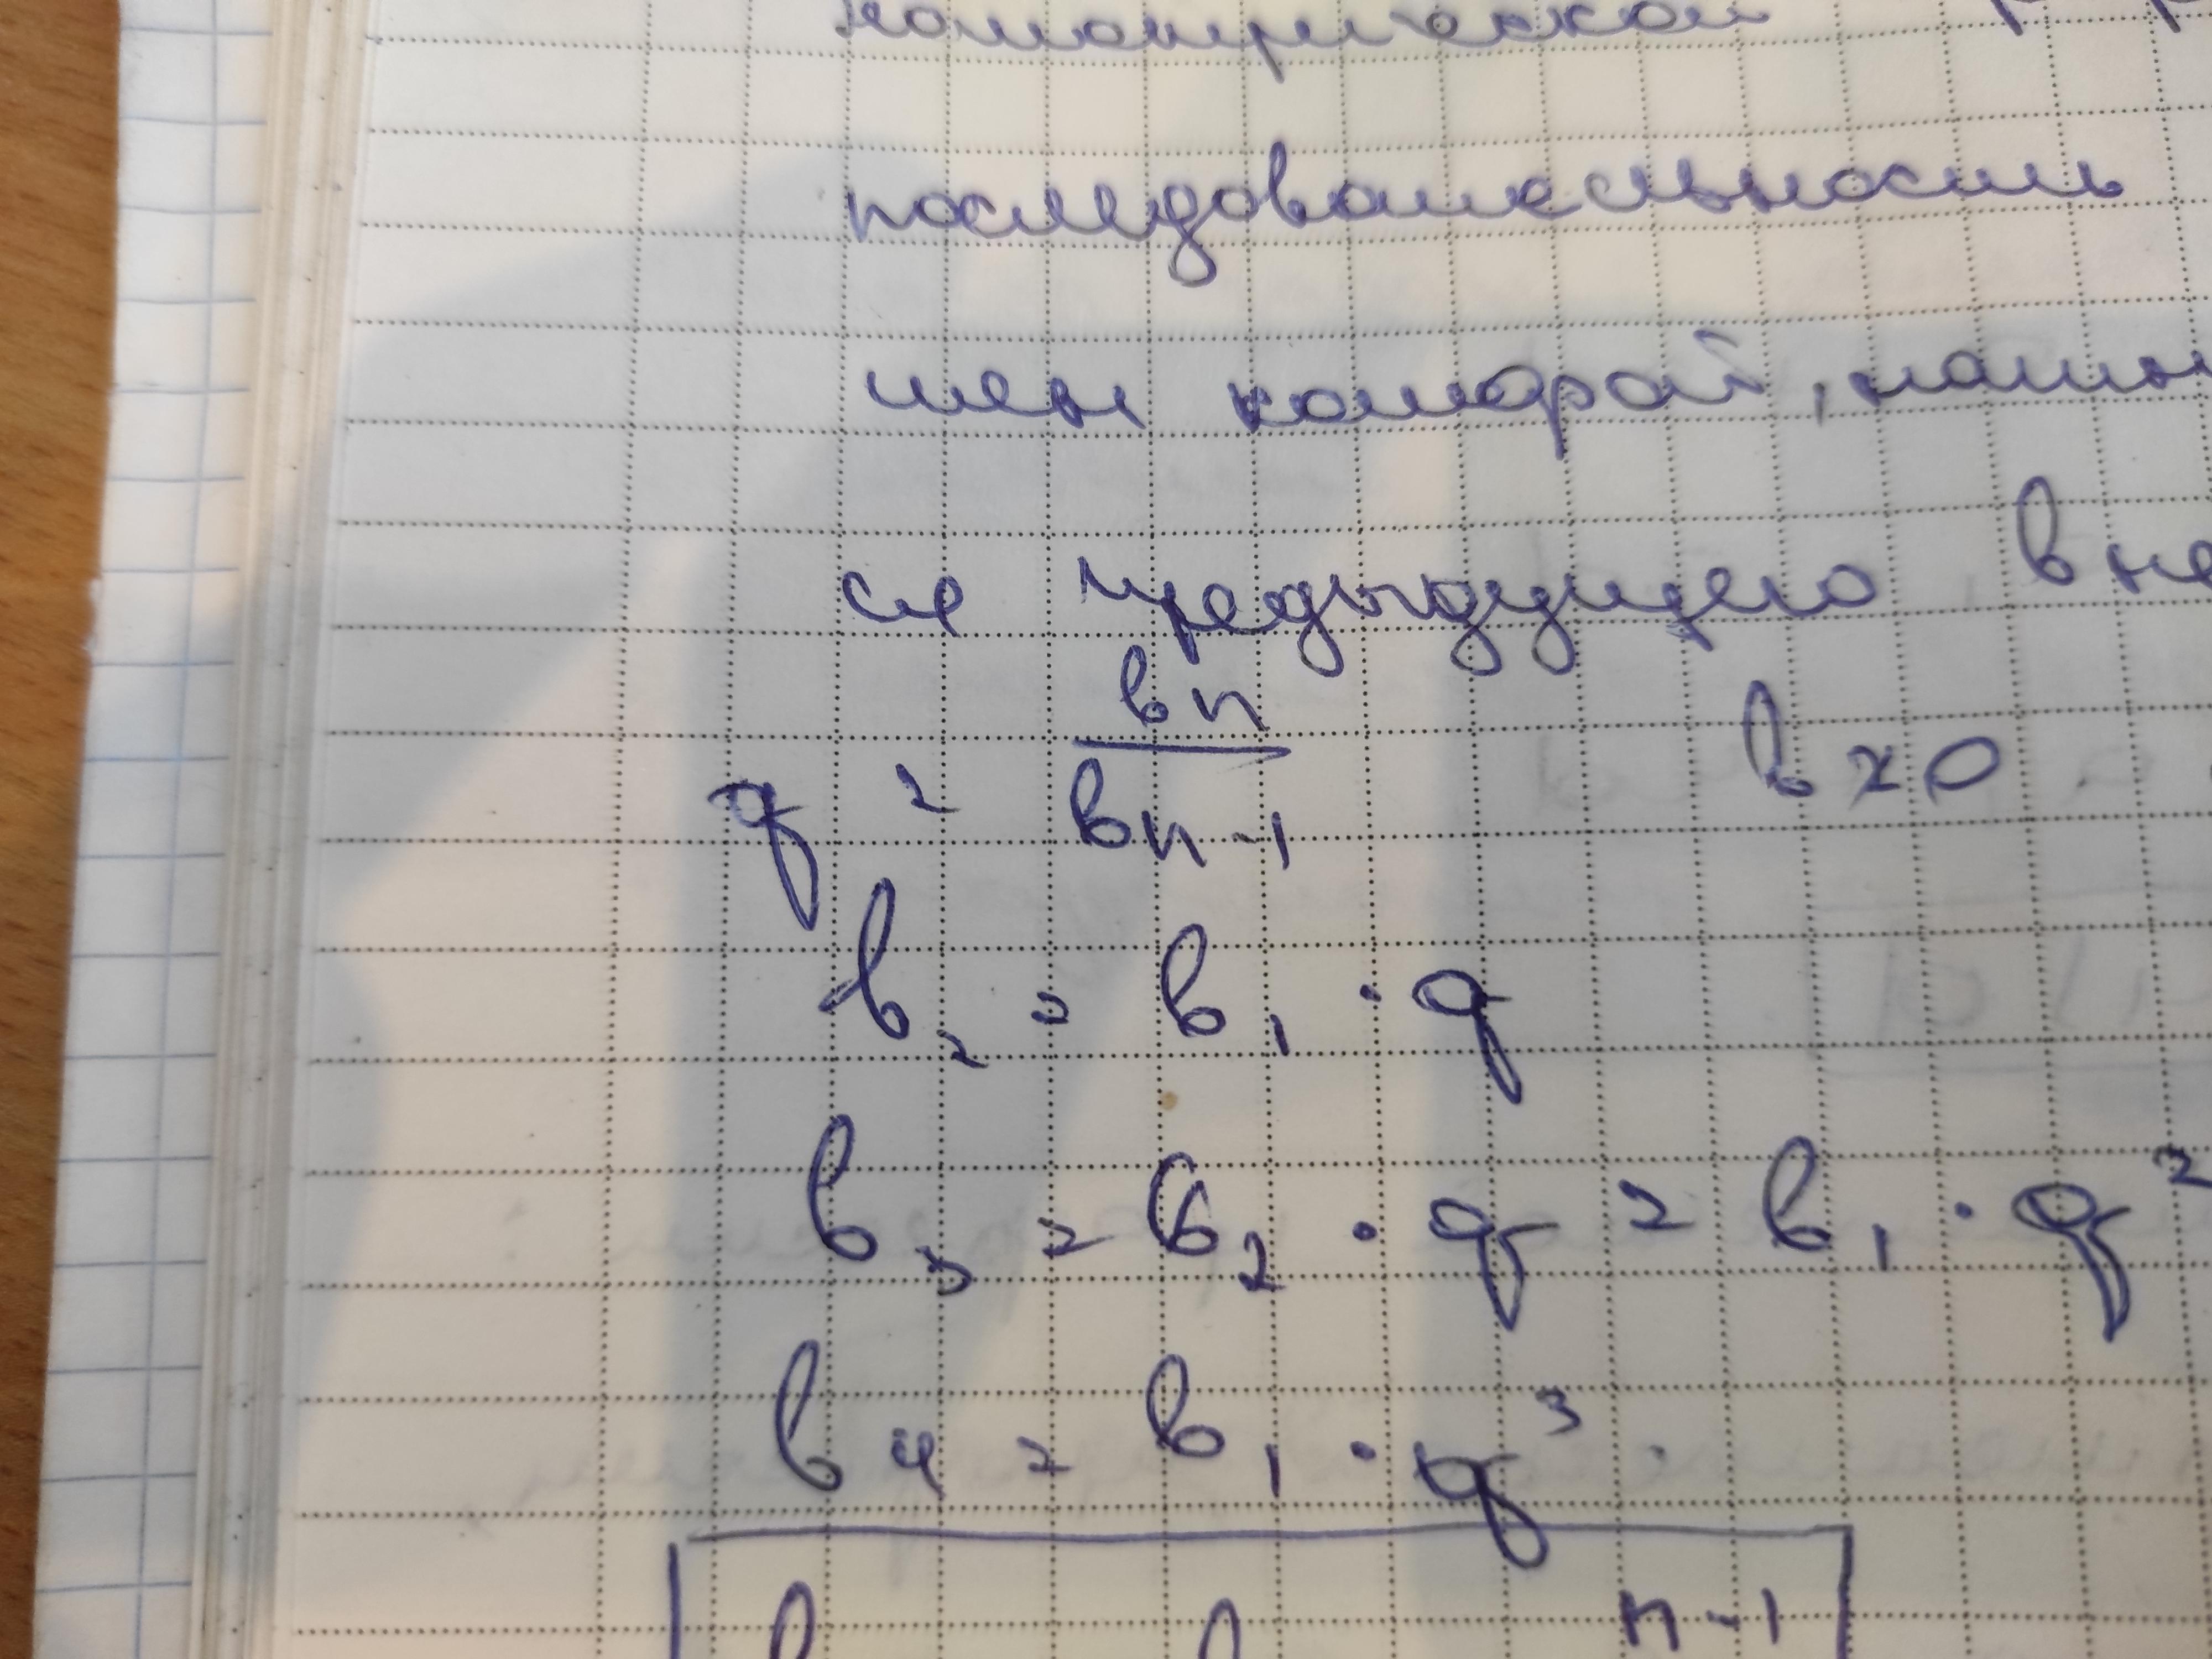 последовательность
член которой, начин
ся предыдущего в не
q = bn / bn-1 b ≠ 0
b2 = b1 · q
b3 = b2 · q = b1 · q²
b4 = b1 · q³
n-1